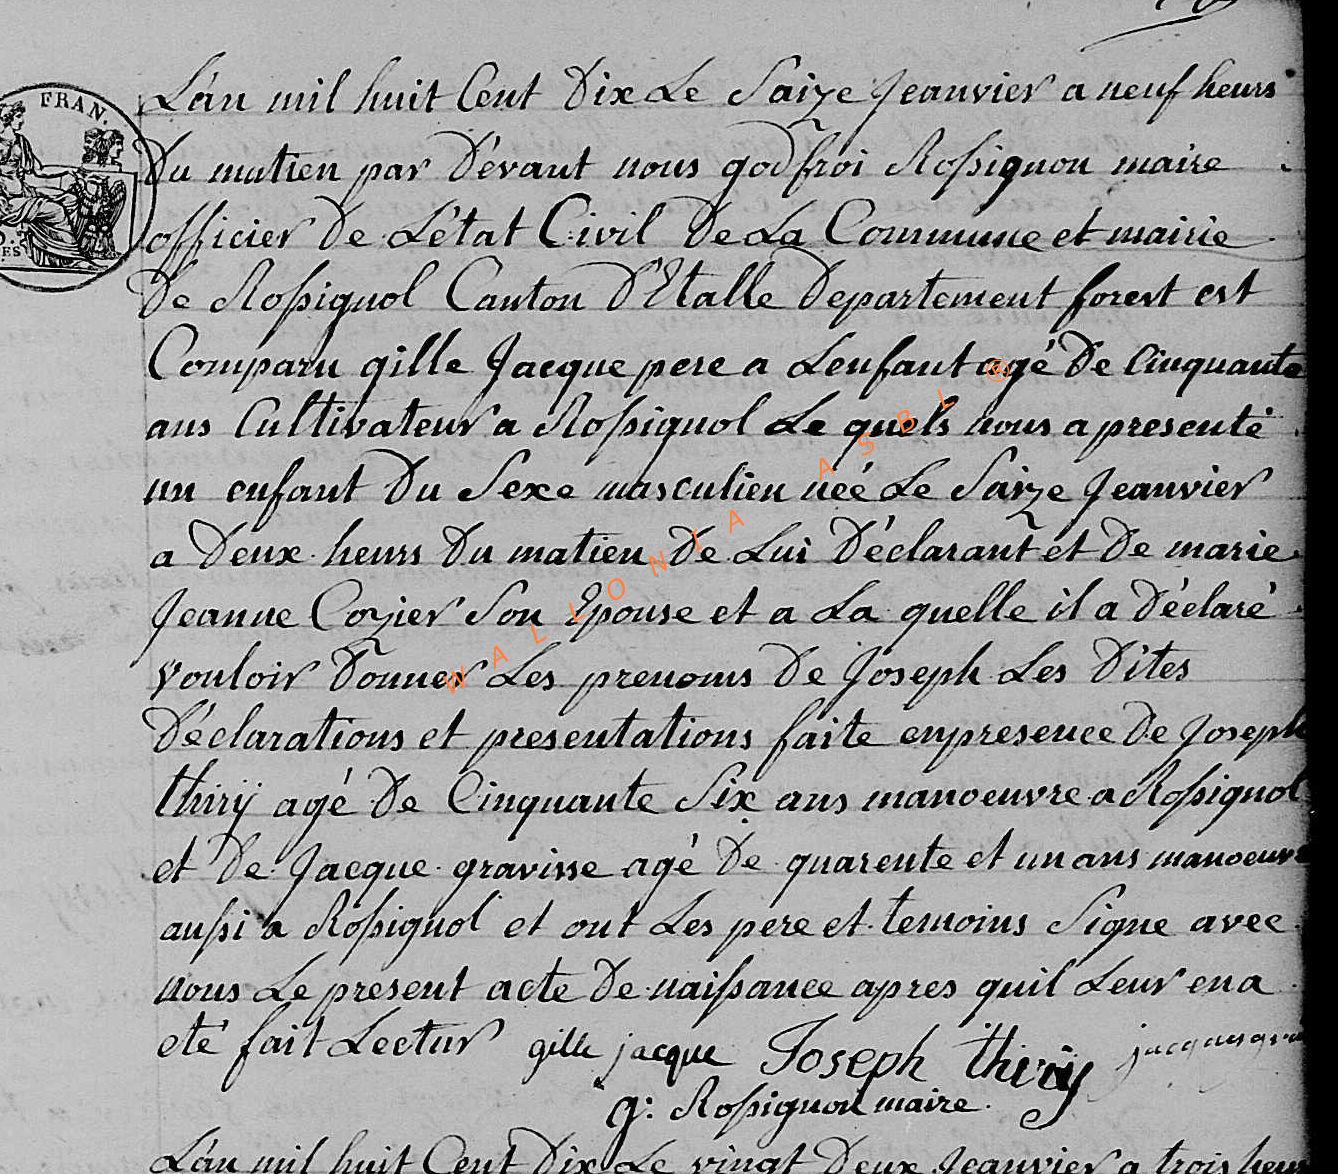 FRAN.
L'an mil huit Cent Dix Le Saize Jeanvier a neuf heurs
Du matien par Dévant nous godfroi Rossignon maire
officier De L'état Civil De La Commune et mairie
De Rossignol Canton D'Etalle Departement forest est
Comparu gille Jacque pere a Lenfant agé De Cinquante
ans Cultivateur a Rossignol Le quels nous a presenté
un enfant Du Sexe masculien néé Le Saize Jeanvier
a Deux heurs Du matien De Lui Déclarant et De marie
Jeanne Cozier Son Epouse et a La quelle il a Déclaré
vouloir Donner Les prenoms De Joseph Les Dites
Déclarations et presentations faite enpresence De Joseph
thirÿ agé De Cinquante Six ans manoeuvre a Rossignol
et De Jacque gravisse agé De quarente et un ans manoeuvre
aussi a Rossignol et ont Les pere et temoins Signe avec
nous Le present acte De naissance apres quil Leur ena
eté fait Lectur gille jacque Joseph thirÿ jacques gra
g: Rossignon maire.
L'an mil huit Cent Dix Le vingt Deux Jeanvier a trois heu
WALLONIA ASBL ®